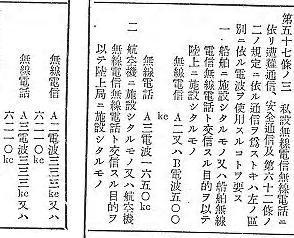 第五十七條ノ三 私設無線電信無線電話ニ
依リ遭難通信、安全通信及第六十二條ノ
二ノ規定ニ依ル通信ヲ爲ストキハ左ノ區
別ニ依ル電波ヲ使用スルコトヲ要ス
一 船舶ニ施設シタルモノ又ハ船舶無線
電信無線電話ト交信スル目的ヲ以テ
陸上ニ施設シタルモノ
無線電信 A二又ハB電波五〇〇
kc
無線電話 A三電波一六五〇kc
二 航空機ニ施設シタルモノ又ハ航空機
無線電信無線電話ト交信スル目的ヲ
以テ陸上局ニ施設シタルモノ
無線電信 A二電波三三三kc又ハ
六二一〇kc
無線電話 A三電波三三三kc又ハ
六二一〇kc